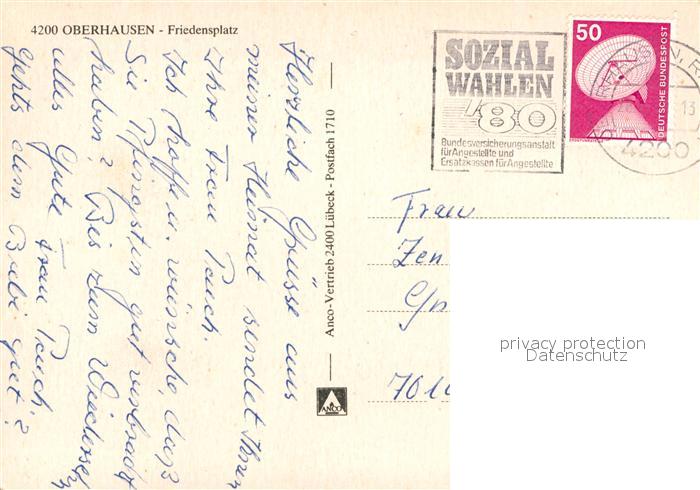 4200 OBERHAUSEN - Friedensplatz
Herzliche Grüsse aus
meiner Heimat sendet Ihnen
Ihre Frau Pauch.
Ich hoffe u. wünsche, daß
Sie Pfingsten gut verbracht
haben? Bis zum Wiederseh
alles Gute Frau Pauch,
Gehts dem Bubi gut?
Anco-Vertrieb 2400 Lübeck - Postfach 1710
ANCO
SOZIAL
WAHLEN
'80
Bundesversicherungsanstalt
für Angestellte und
Ersatzkassen für Angestellte
50
DEUTSCHE BUNDESPOST
13
4200
Frau
Zen
701
privacy protection
Datenschutz